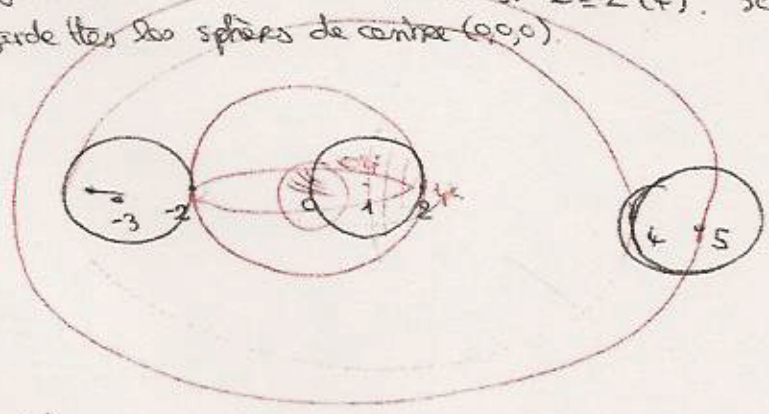 2 = 2 (4).
garde ttes les sphères de centre (0,0,0).
-3 -2 0 1 2 4 5